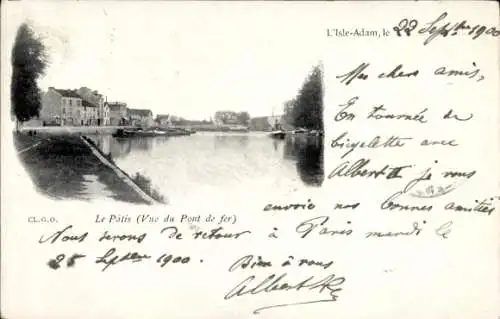 L'Isle-Adam, le 22 Septbre 1900
Mes chers amis,
En tournée de
bicyclette avec
Albert je vous
envoie nos bonnes amitiés
CL. C. O.
Le Pâtis (Vue du Pont de fer)
Nous serons de retour à Paris mardi le
25 septbre 1900.
Bien à vous
Albert